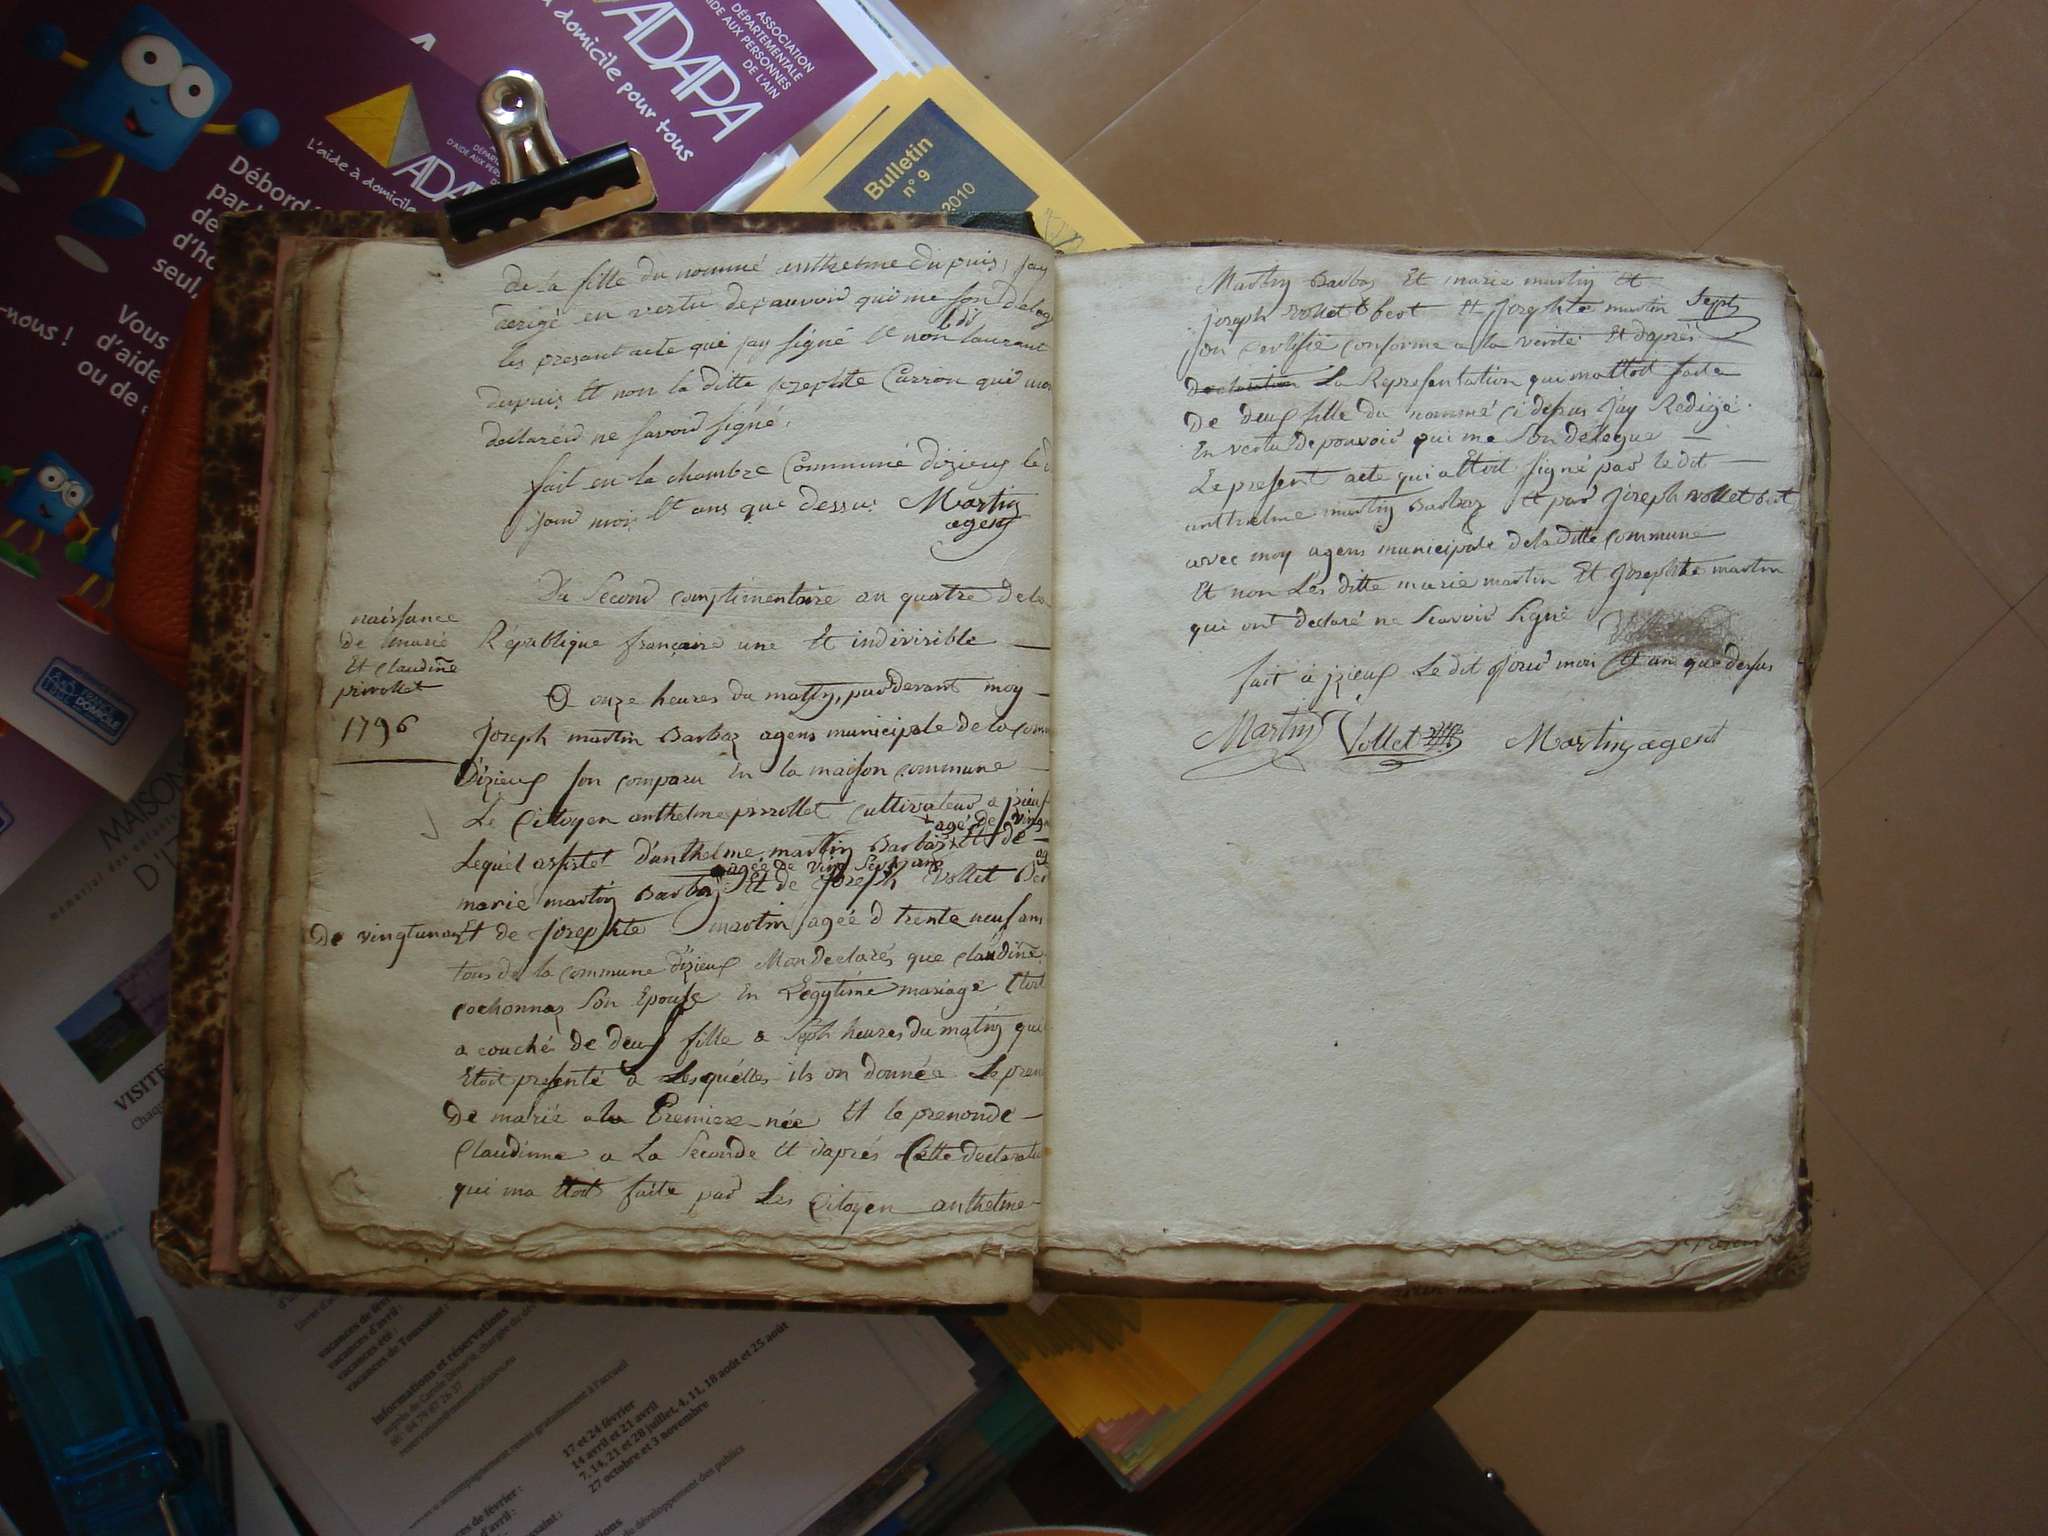 ADAPA
ASSOCIATION
DÉPARTEMENTALE
D'AIDE AUX PERSONNES
DE L'AIN
à domicile pour tous
L'aide à domicile
Débord
Vous
d'aide
ou de
seul,
-nous !
Bulletin
n° 9
2010
de la fille du nommé anthelme dupuis, jay
rerigé en vertu de pauvoir qui me son deleg
les presant acte qui jay signé et non ledit laurant
dupuis et non la ditte josephte Carron qui mon
declaréw ne savoir signé,
fait en la chambre Commune dizieux le d
jour mois et ans que dessus Martin
agent
naissance
de marie
et claudine
pirrollet
1796
Du Second complimentaire an quatre de la
République francaire une et indivisible
a onze heures du matin, par devant moy
Joseph martin Barbaz agens municipale de la com
Dizieux son comparu en la maison commune
Le Citoyen anthelme pirrollet cultivateur a jzieux
agé de vingt
Lequel assistet d'anthelme martin Barbaz et de
agée de vingt sept ans
marie martin Barbaz et de joseph Vollet Ber
De vingtunans et de josephte martin agée d trente neuf ans
tous de la commune dizieux Mon declarés que claudine
cochonnaz son Epouse en Legytime mariage Etoit
a couché de deux fille a sept heures du matin qui
Etoit presenté a Lesquélles ils on donnée Le pren
De marie a la Premiere née et le prenon de
Claudinne a La Seconde et daprés Cette declaratio
qui ma Etoit faite par Les Citoyen anthelme
Martin Barbaz Et marie martin Et
joseph vollet bert et josephte martin
son Certifié conforme a la verité Et daprés
declaration La Representation qui ma ettoit faite
De deux fille du nommé ci depus jay Redigé
En vertu de pouvoir qui me Son délegue
Le present acte qui a Ettoit signé par le dit
anthelme martin Barbaz et par joseph vollet bert
avec moy agens municipale de la ditte commune
Et non Les ditte marie martin Et josephte martin
qui ont declaré ne Scavoir Signé
fait à jzieux Le dit jour moi et an que dessus
Martin Vollet Martin agent
MAISON
D'I
VISITE
Informations et réservations
17 et 24 février
14 avril et 21 avril
7, 14, 21 et 28 juillet, 4, 11, 18 août et 25 août
27 octobre et 3 novembre
du développement des publics